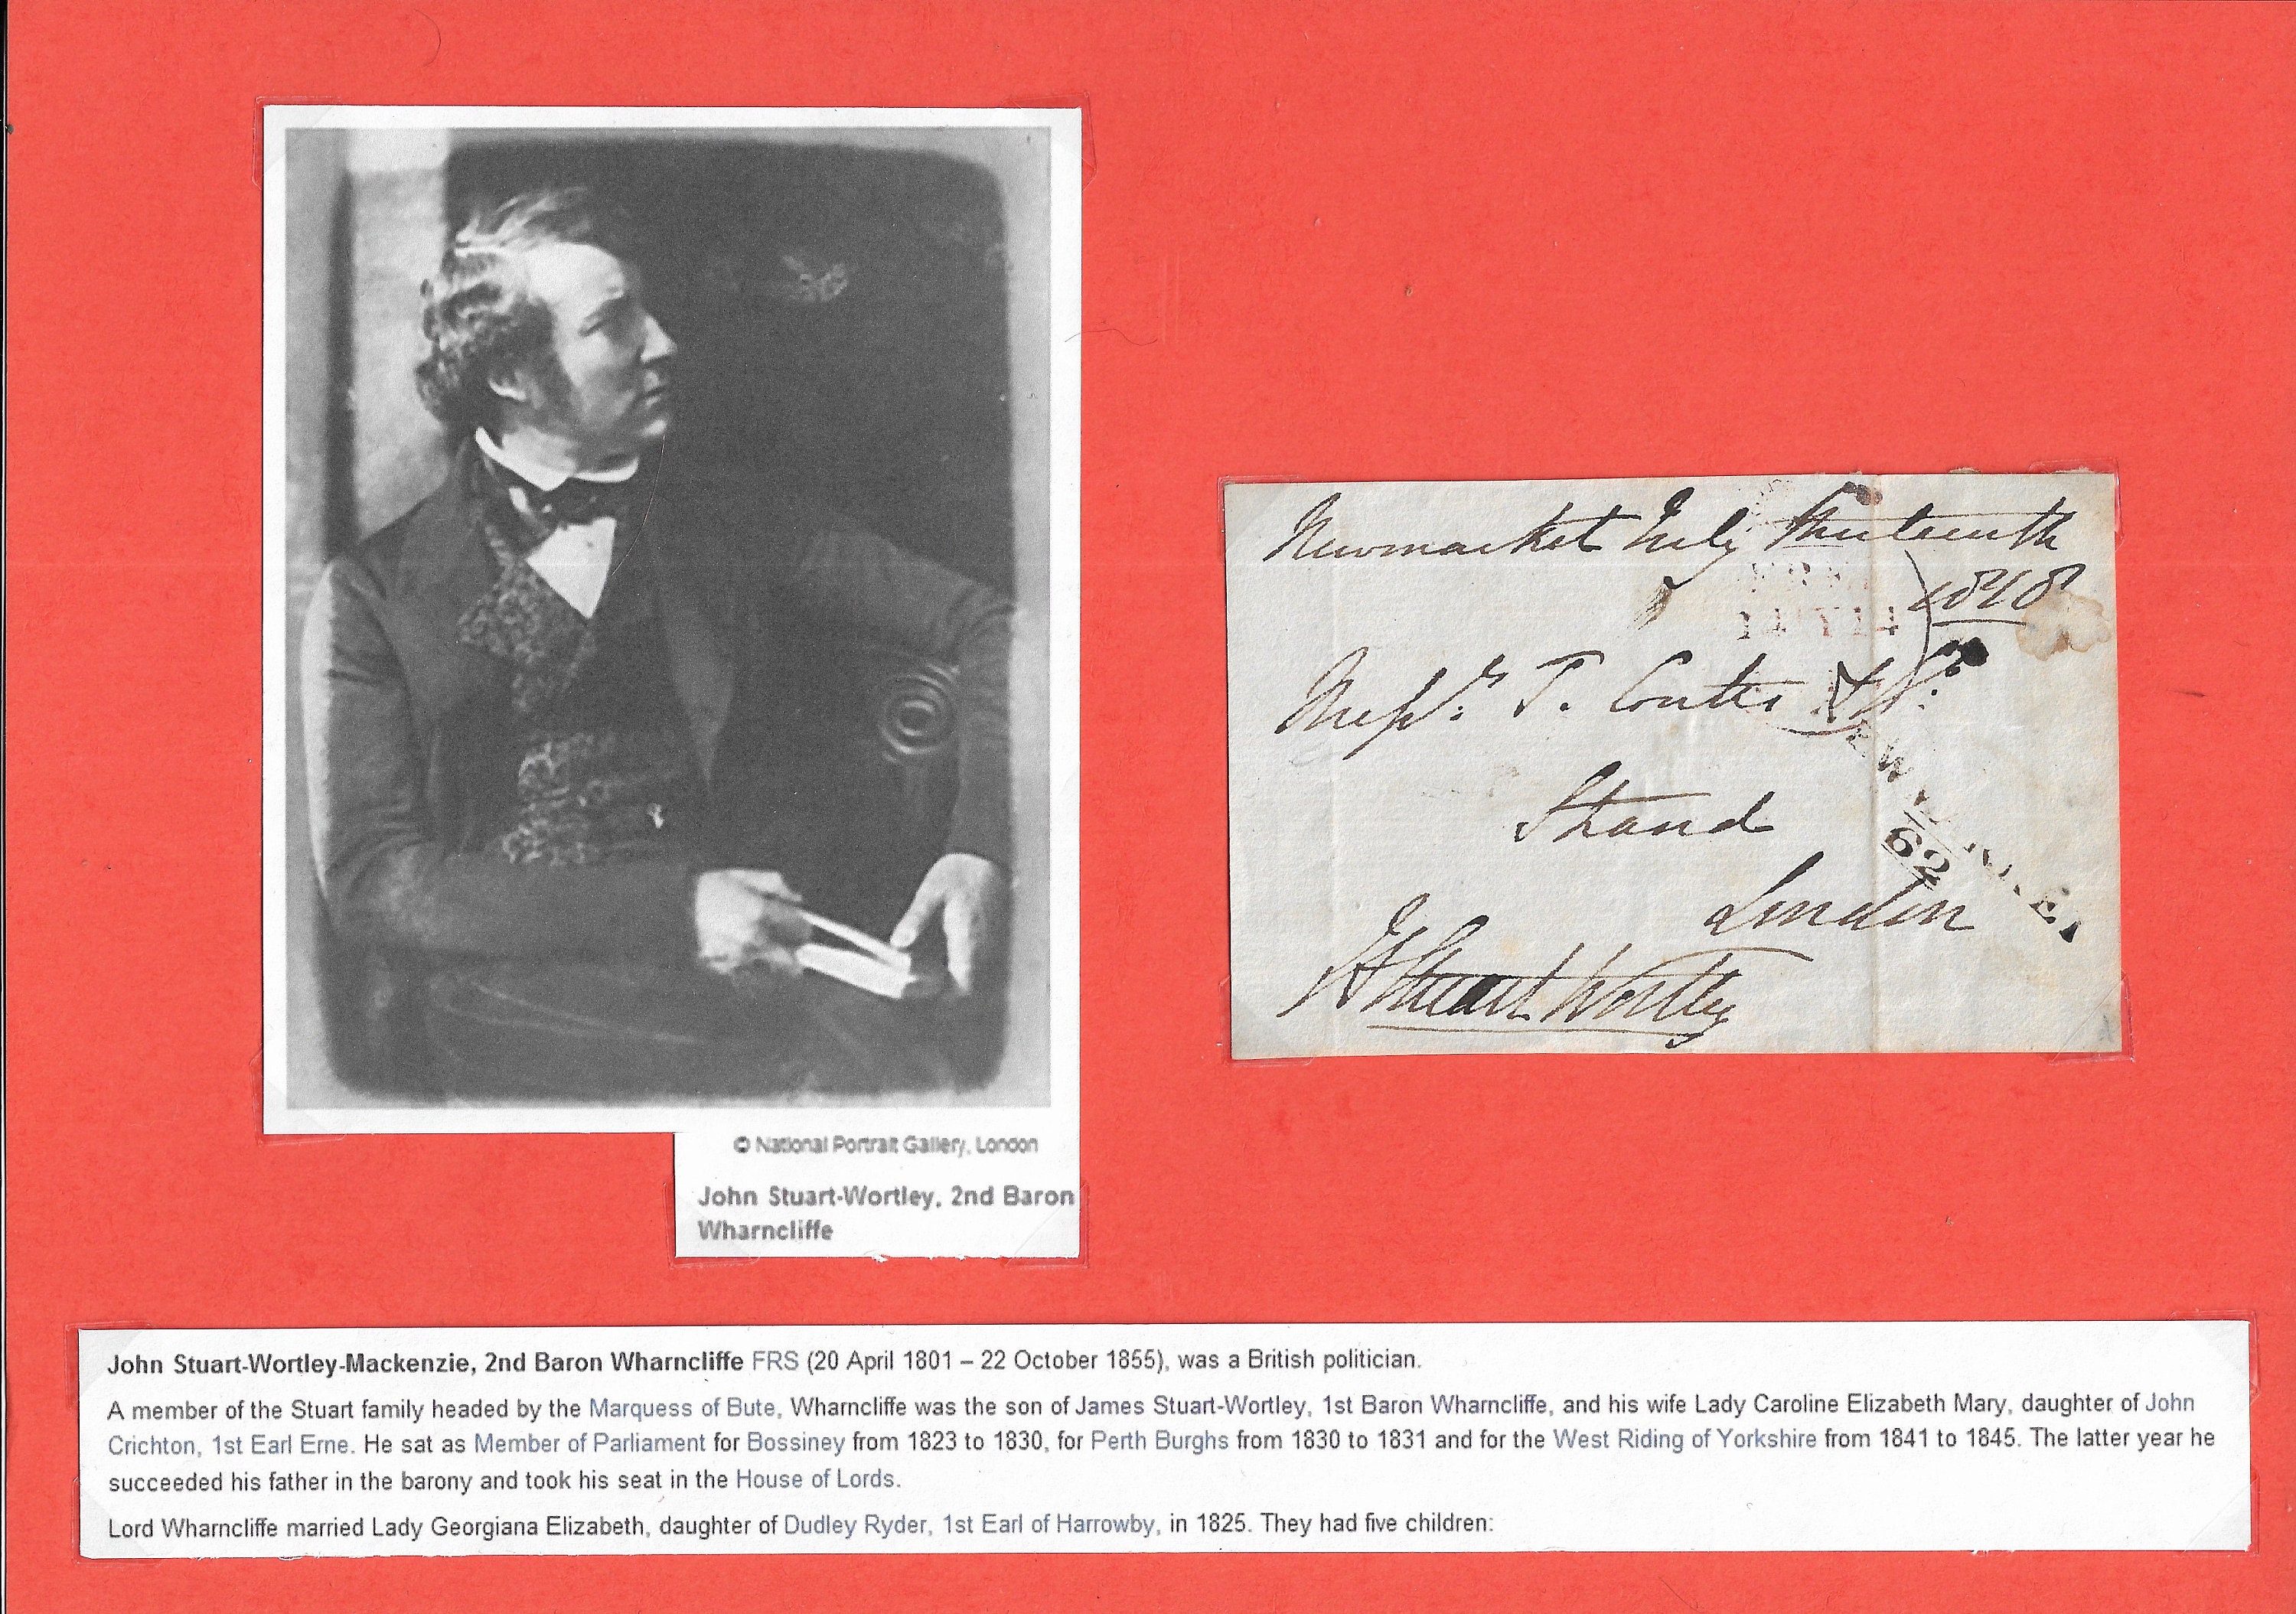 © National Portrait Gallery, London
John Stuart-Wortley, 2nd Baron
Wharncliffe
Newmarket July thirteenth
1818
Messrs. T. Coutts & Co.
Strand
London
Stuart Wortley
62
John Stuart-Wortley-Mackenzie, 2nd Baron Wharncliffe FRS (20 April 1801 – 22 October 1855), was a British politician.
A member of the Stuart family headed by the Marquess of Bute, Wharncliffe was the son of James Stuart-Wortley, 1st Baron Wharncliffe, and his wife Lady Caroline Elizabeth Mary, daughter of John
Crichton, 1st Earl Erne. He sat as Member of Parliament for Bossiney from 1823 to 1830, for Perth Burghs from 1830 to 1831 and for the West Riding of Yorkshire from 1841 to 1845. The latter year he
succeeded his father in the barony and took his seat in the House of Lords.
Lord Wharncliffe married Lady Georgiana Elizabeth, daughter of Dudley Ryder, 1st Earl of Harrowby, in 1825. They had five children: